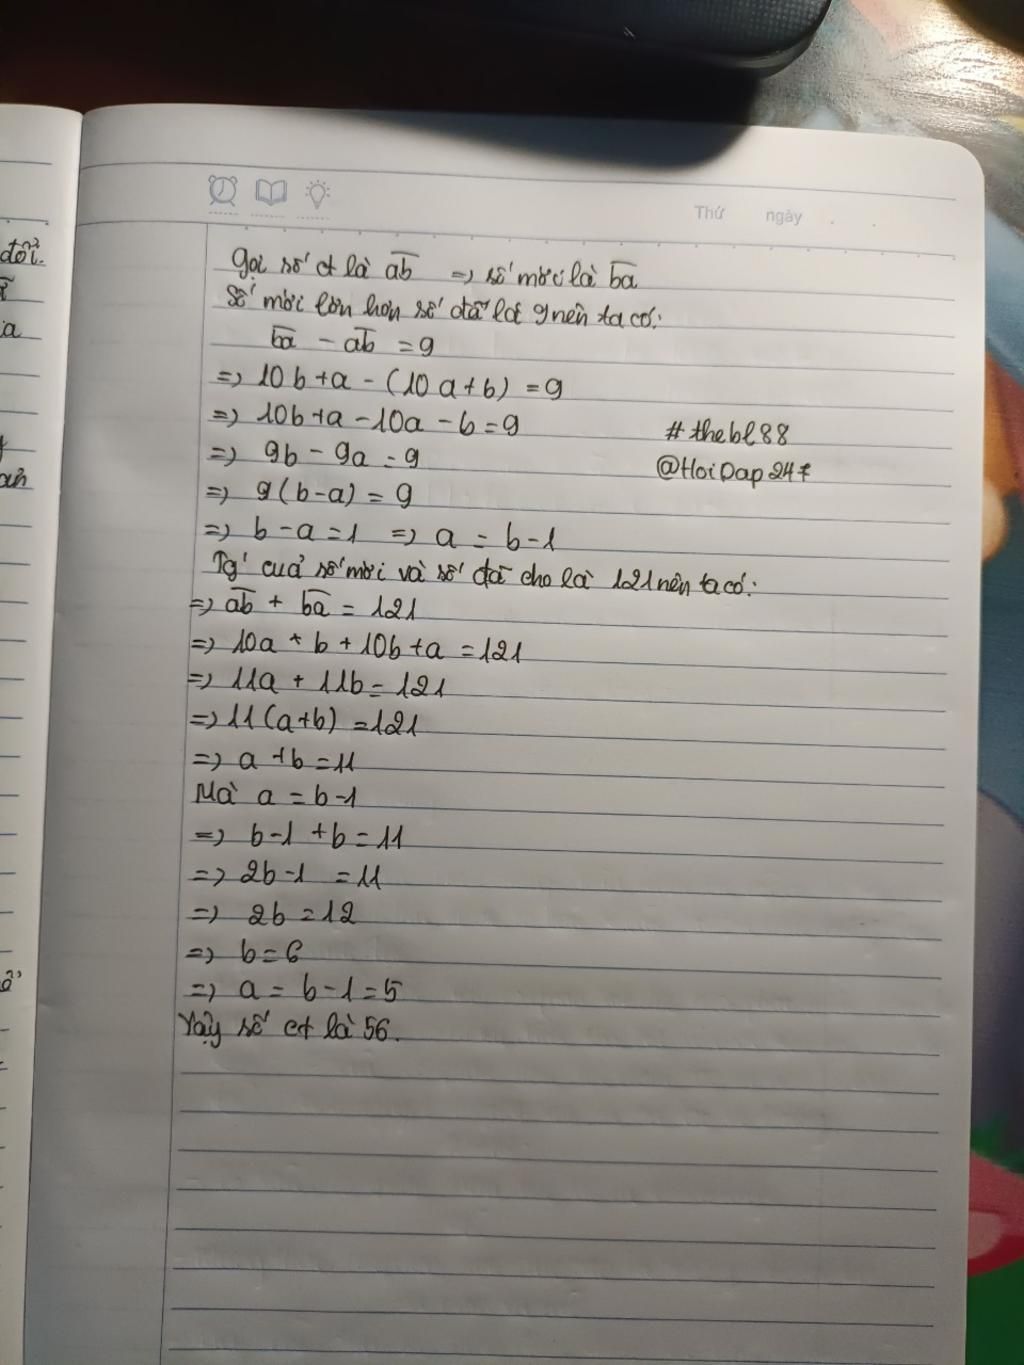 Thứ ngày
Gọi số ct là ab => số mới là ba
Số mới lớn hơn số đã là 9 nên ta có:
ba - ab = 9
=> 10b + a - (10a + b) = 9
=> 10b + a - 10a - b = 9
#thebl88
=> 9b - 9a = 9
@HoiDap247
=> 9(b-a) = 9
=> b - a = 1 => a = b - 1
Tg' của số mới và số đã cho là 121 nên ta có:
=> ab + ba = 121
=> 10a + b + 10b + a = 121
=> 11a + 11b = 121
=> 11(a+b) = 121
=> a + b = 11
Mà a = b - 1
=> b - 1 + b = 11
=> 2b - 1 = 11
=> 2b = 12
=> b = 6
=> a = b - 1 = 5
Vậy số ct là 56.
đổi.
a